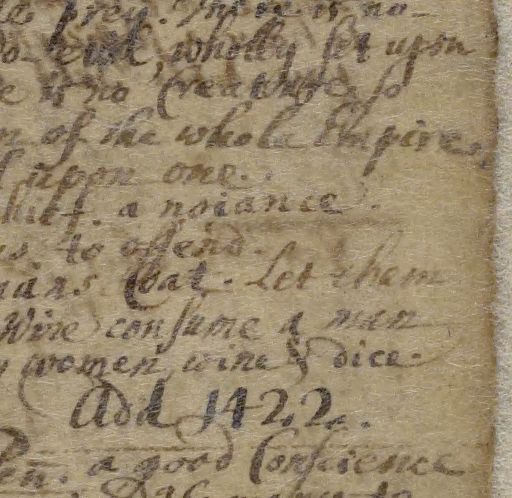 prey. There is no-
do evil, wholly set upon
e is no Creature so
n of the whole Empire,
d upon one.
hief. a noiance.
us. to offend.
mans Coat. Let them
Wine consume a man
y women, wine & dice.
Add 1422.
Pen. a good Conscience